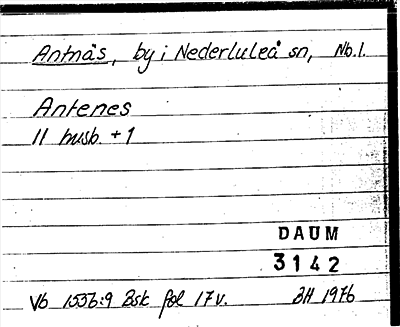 Antnäs, by i Nederluleå sn, Nb.l.
Antenes
11 husb. + 1
DAUM
3142
Vb 1536:9 Bsk fol 17v. BH 1976